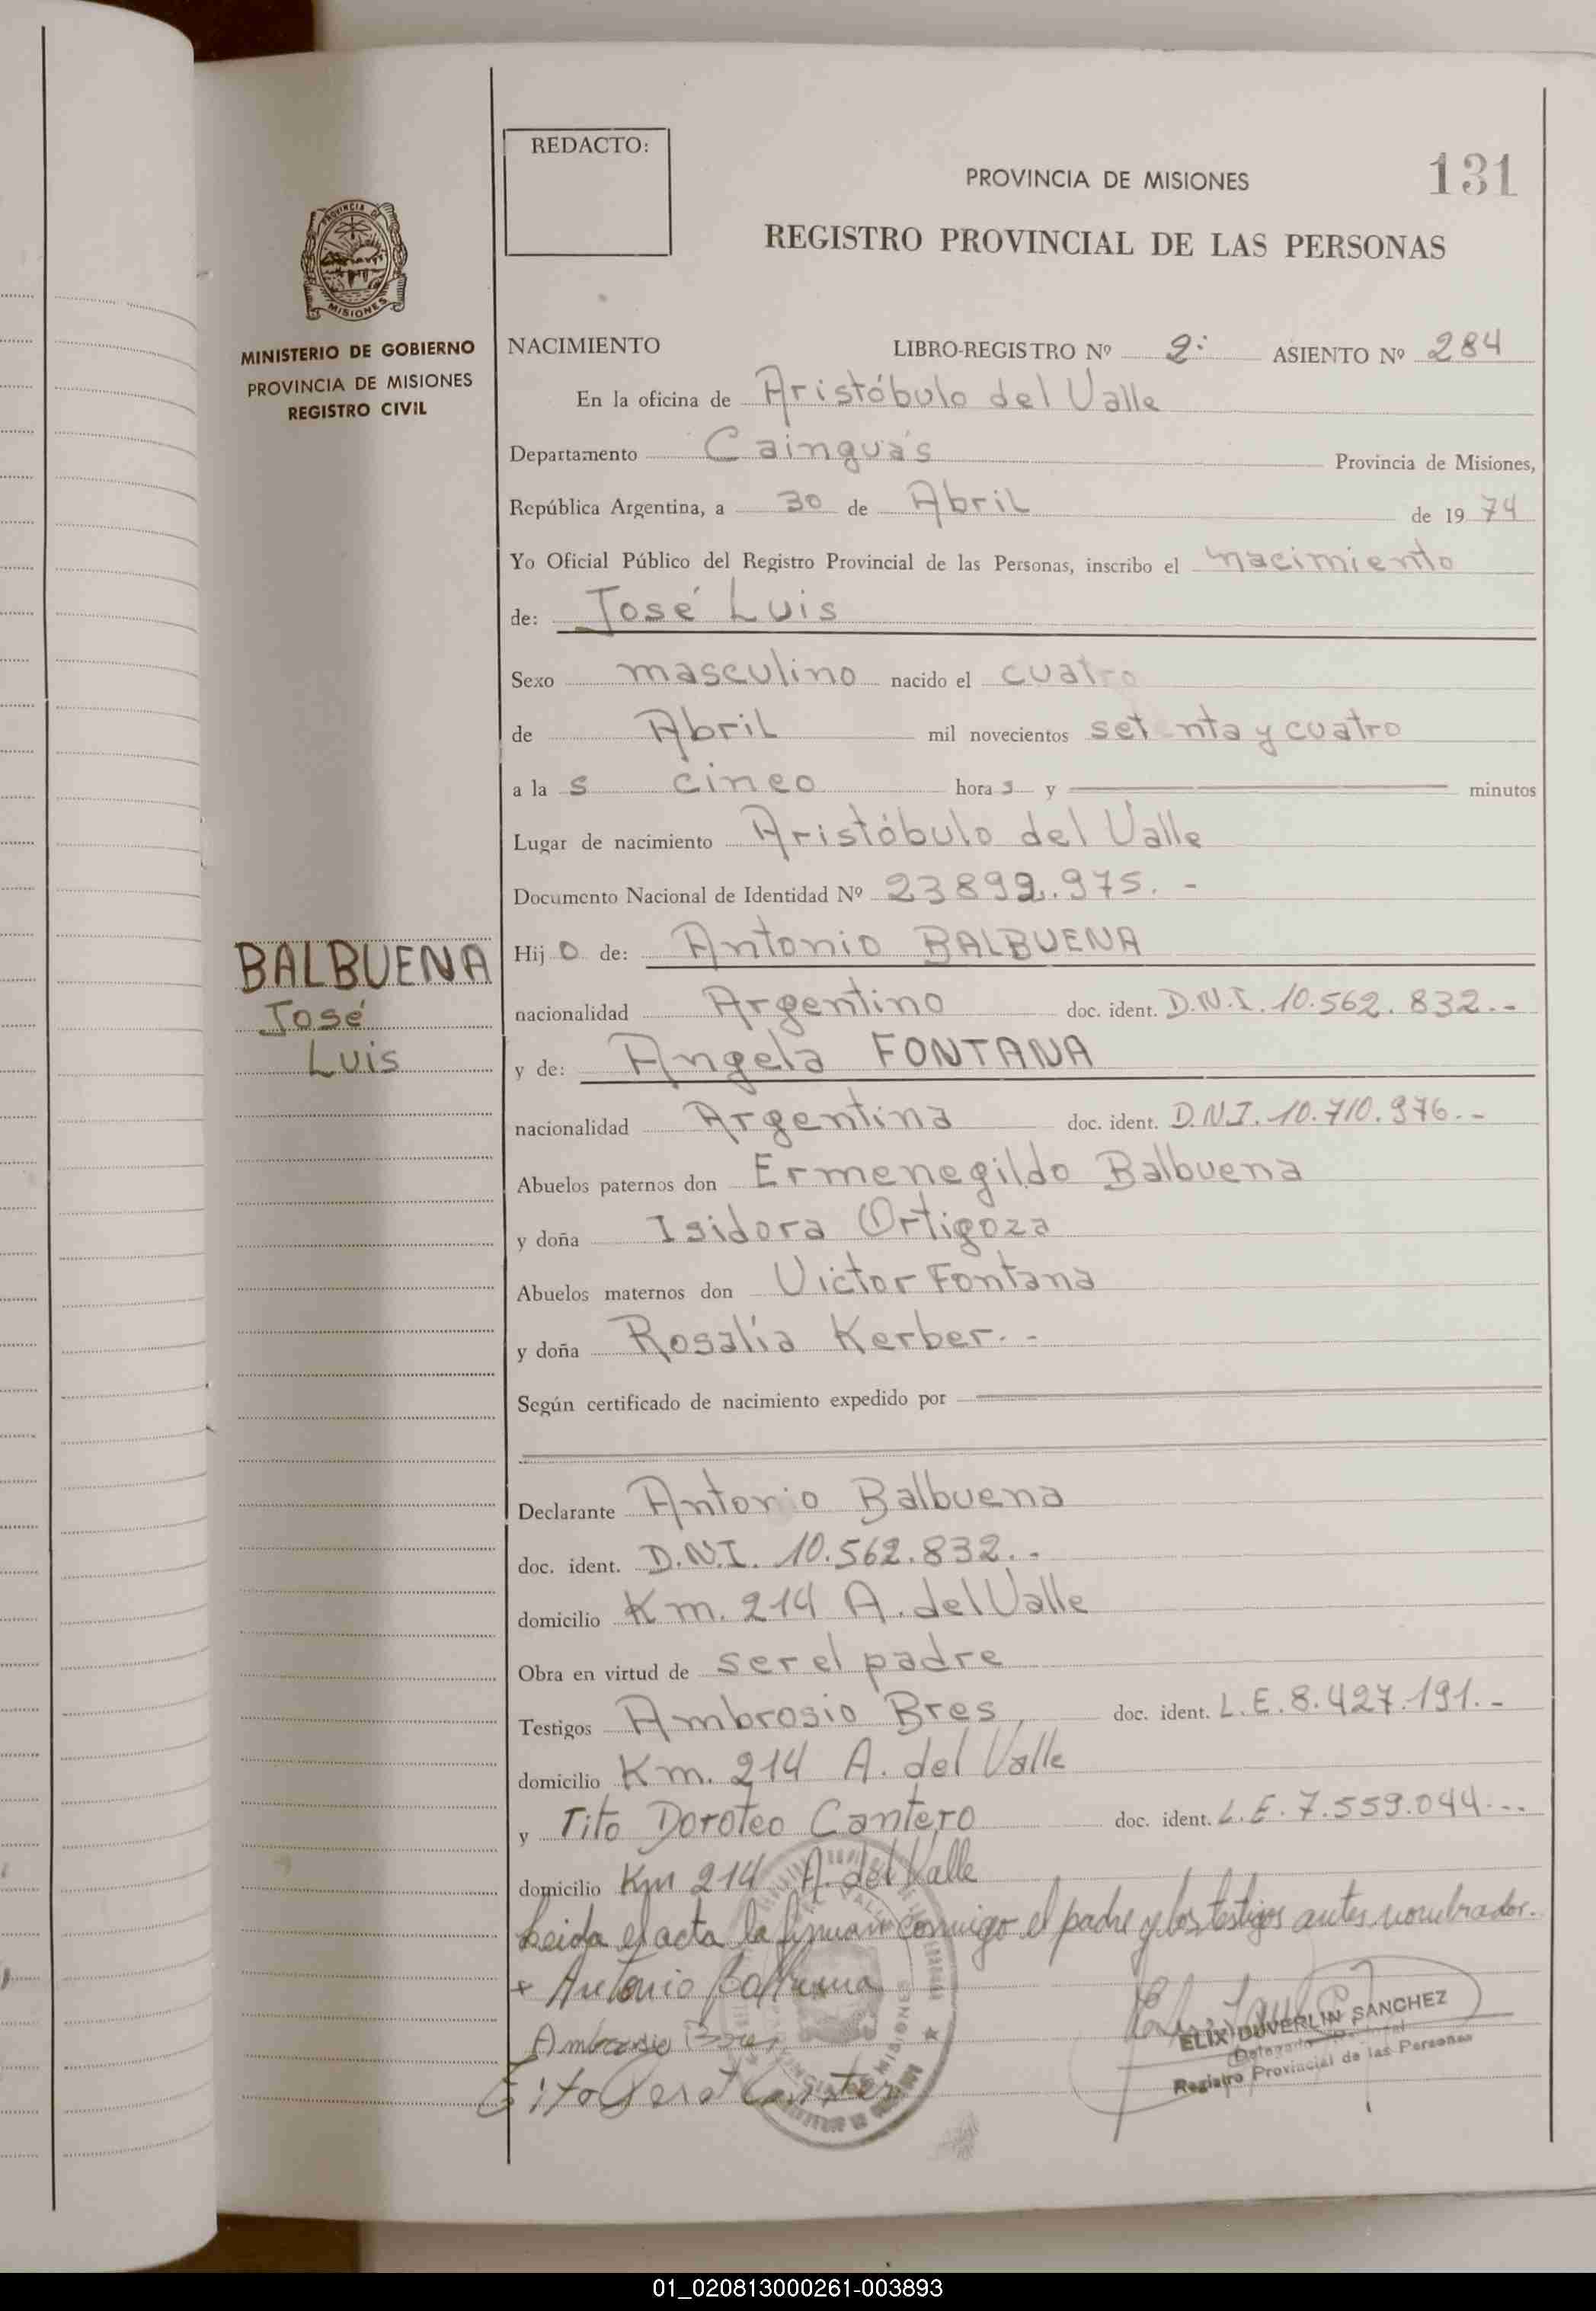 REDACTO:
131
PROVINCIA DE MISIONES
REGISTRO PROVINCIAL DE LAS PERSONAS
PROVINCIA DE
MISIONES
MINISTERIO DE GOBIERNO
PROVINCIA DE MISIONES
REGISTRO CIVIL
NACIMIENTO LIBRO-REGISTRO Nº 2: ASIENTO Nº 284
En la oficina de Aristóbulo del Valle
Departamento Cainguás Provincia de Misiones,
República Argentina, a 30 de Abril de 1974
Yo Oficial Público del Registro Provincial de las Personas, inscribo el nacimiento
de: José Luis
Sexo masculino nacido el cuatro
de Abril mil novecientos setenta y cuatro
a la s cinco hora s y minutos
Lugar de nacimiento Aristóbulo del Valle
Documento Nacional de Identidad Nº 23892.975.-
BALBUENA
José
Luis
Hij o de: Antonio BALBUENA
nacionalidad Argentino doc. ident. D.N.I. 10.562.832.-
y de: Angela FONTANA
nacionalidad Argentina doc. ident. D.N.I. 10.710.976.-
Abuelos paternos don Ermenegildo Balbuena
y doña Isidora Ortigoza
Abuelos maternos don Victor Fontana
y doña Rosalía Kerber.-
Según certificado de nacimiento expedido por
Declarante Antonio Balbuena
doc. ident. D.N.I. 10.562.832.-
domicilio Km. 214 A. del Valle
Obra en virtud de ser el padre
Testigos Ambrosio Bres, doc. ident. L.E. 8.427.191.-
domicilio Km. 214 A. del Valle
y Tito Doroteo Cantero doc. ident. L.E. 7.559.044.--
domicilio Km 214 A. del Valle
Leida el acta la firman conmigo el padre y los testigos antes nombrados.
+ Antonio Balbuena
Ambrosio Bres
Tito Cantero
MISIONES
ELIX DUVERLIN SANCHEZ
Registro Provincial de las Personas
01_020813000261-003893